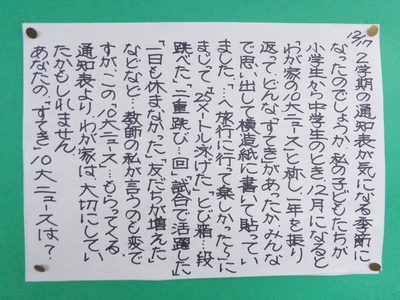 12/17
2学期の通知表が気になる季節に
なったのでしょうか。私の子どもたちが
小学生から中学生のとき、12月になると
「わが家の10大ニュース」と称し、一年を振り
返って、どんな「すてき」があったか、みんな
で思い出して模造紙に書いて貼ってい
ました。「八旅行に行って楽しかった〜」に
まじって「25メートル泳げた」「とび箱…段
跳べた」「二重跳び…回」「試合で活躍した」
「一日も休まなかった」「友だちが増えた」
などなど…教師の私が言うのも変で
すが、この「10大ニュース」…もらってくる
通知表より、わが家は大切にしてい
たかもしれません。
あなたの「すてき」10大ニュースは?